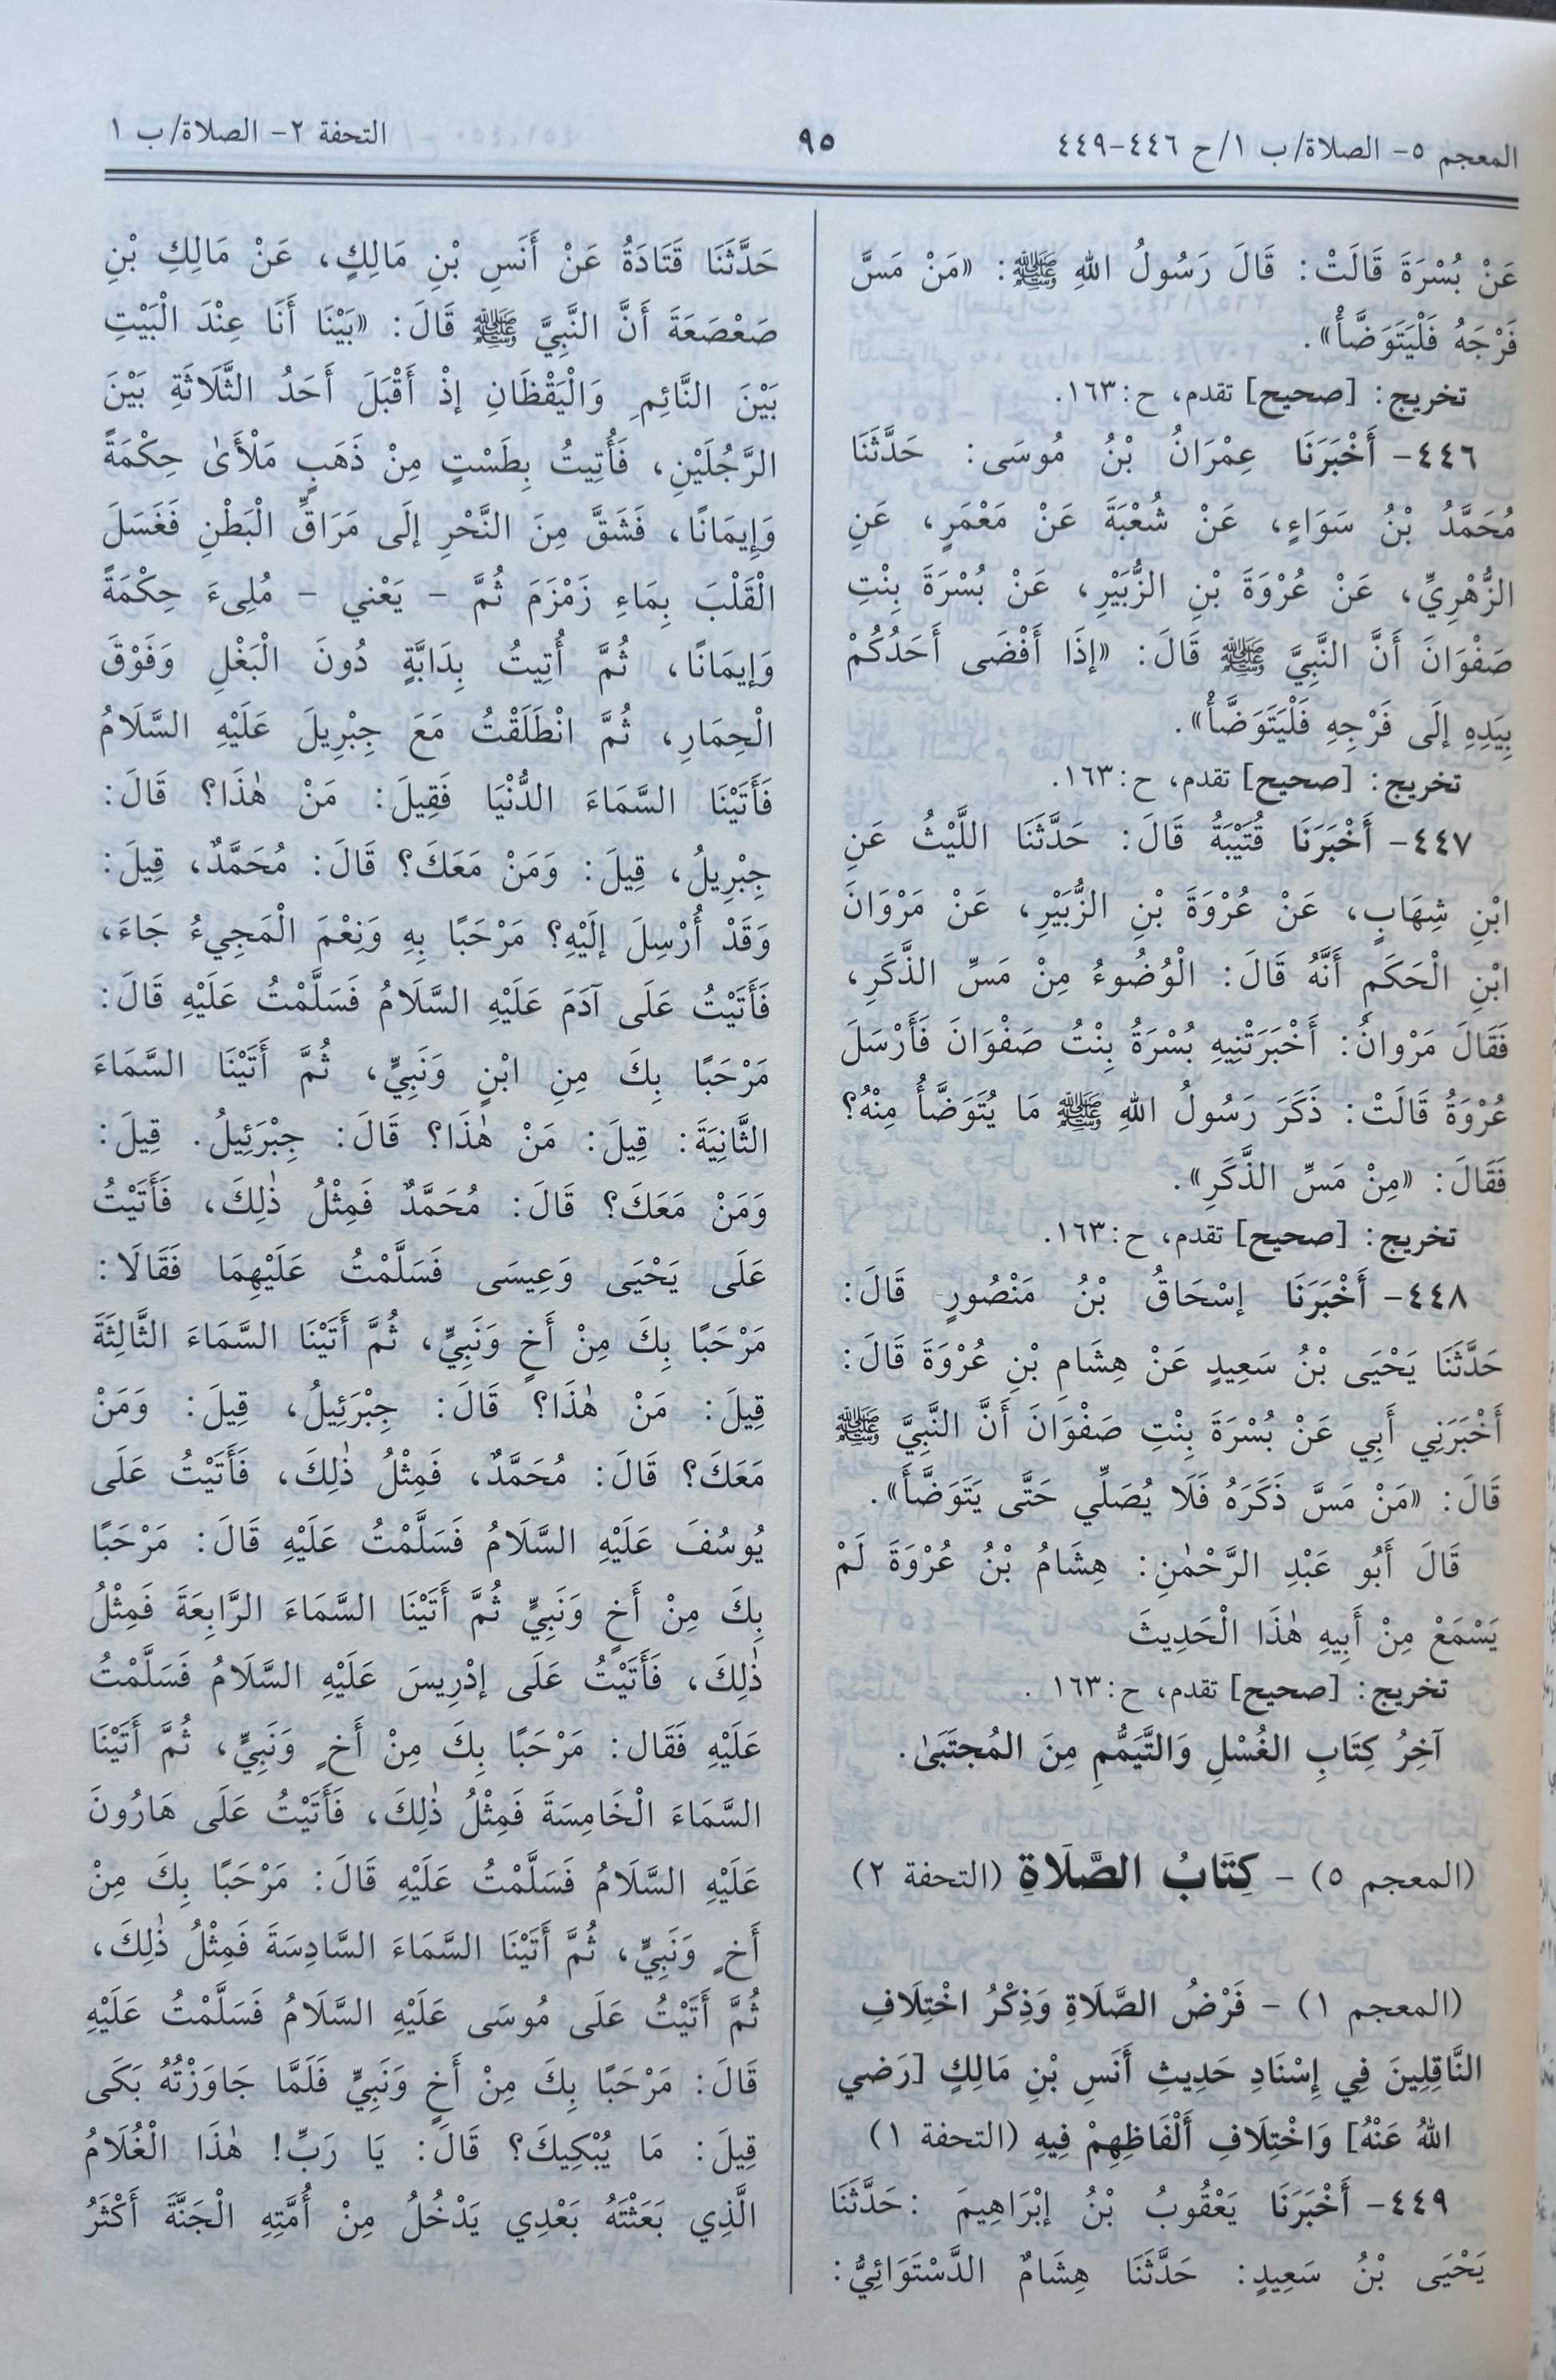 المعجم ٥- الصلاة/ ب ١/ ح ٤٤٦-٤٤٩
٩٥
التحفة ٢- الصلاة/ ب ١
عَنْ بُسْرَةَ قَالَتْ: قَالَ رَسُولُ اللهِ ﷺ: «مَنْ مَسَّ
فَرْجَهُ فَلْيَتَوَضَّأْ».
تخريج: [صحيح] تقدم، ح:١٦٣.
٤٤٦- أَخْبَرَنَا عِمْرَانُ بْنُ مُوسَى: حَدَّثَنَا
مُحَمَّدُ بْنُ سَوَاءٍ، عَنْ شُعْبَةَ عَنْ مَعْمَرٍ، عَنِ
الزُّهْرِيِّ، عَنْ عُرْوَةَ بْنِ الزُّبَيْرِ، عَنْ بُسْرَةَ بِنْتِ
صَفْوَانَ أَنَّ النَّبِيَّ ﷺ قَالَ: «إذَا أَفْضَى أَحَدُكُمْ
بِيَدِهِ إلَى فَرْجِهِ فَلْيَتَوَضَّأْ».
تخريج: [صحيح] تقدم، ح:١٦٣.
٤٤٧- أَخْبَرَنَا قُتَيْبَةُ قَالَ: حَدَّثَنَا اللَّيْثُ عَنِ
ابْنِ شِهَابٍ، عَنْ عُرْوَةَ بْنِ الزُّبَيْرِ، عَنْ مَرْوَانَ
ابْنِ الْحَكَمِ أَنَّهُ قَالَ: الْوُضُوءُ مِنْ مَسِّ الذَّكَرِ،
فَقَالَ مَرْوانُ: أَخْبَرَتْنِيهِ بُسْرَةُ بِنْتُ صَفْوَانَ فَأَرْسَلَ
عُرْوَةُ قَالَتْ: ذَكَرَ رَسُولُ اللهِ ﷺ مَا يُتَوَضَّأُ مِنْهُ؟
فَقَالَ: «مِنْ مَسِّ الذَّكَرِ».
تخريج: [صحيح] تقدم، ح:١٦٣.
٤٤٨- أَخْبَرَنَا إسْحَاقُ بْنُ مَنْصُورٍ قَالَ:
حَدَّثَنَا يَحْيَى بْنُ سَعِيدٍ عَنْ هِشَامِ بْنِ عُرْوَةَ قَالَ:
أَخْبَرَنِي أَبِي عَنْ بُسْرَةَ بِنْتِ صَفْوَانَ أَنَّ النَّبِيَّ ﷺ
قَالَ: «مَنْ مَسَّ ذَكَرَهُ فَلَا يُصَلِّي حَتَّى يَتَوَضَّأَ».
قَالَ أَبُو عَبْدِ الرَّحْمٰنِ: هِشَامُ بْنُ عُرْوَةَ لَمْ
يَسْمَعْ مِنْ أَبِيهِ هٰذَا الْحَدِيثَ
تخريج: [صحيح] تقدم، ح:١٦٣ .
آخِرُ كِتَابِ الغُسْلِ وَالتَّيَمُّمِ مِنَ المُجتَبَىٰ.
(المعجم ٥) - كِتَابُ الصَّلَاةِ (التحفة ٢)
(المعجم ١) - فَرْضُ الصَّلَاةِ وَذِكْرُ اخْتِلَافِ
النَّاقِلِينَ فِي إِسْنَادِ حَدِيثِ أَنَسِ بْنِ مَالِكٍ [رَضي
اللهُ عَنْهُ] وَاخْتِلَافِ أَلْفَاظِهِمْ فِيهِ (التحفة ١)
٤٤٩- أَخْبَرَنَا يَعْقُوبُ بْنُ إبْرَاهِيمَ :حَدَّثَنَا
يَحْيَى بْنُ سَعِيدٍ: حَدَّثَنَا هِشَامٌ الدَّسْتَوَائِيُّ:
حَدَّثَنَا قَتَادَةُ عَنْ أَنَسِ بْنِ مَالِكٍ، عَنْ مَالِكِ بْنِ
صَعْصَعَةَ أَنَّ النَّبِيَّ ﷺ قَالَ: «بَيْنَا أَنَا عِنْدَ الْبَيْتِ
بَيْنَ النَّائِمِ وَالْيَقْظَانِ إذْ أَقْبَلَ أَحَدُ الثَّلَاثَةِ بَيْنَ
الرَّجُلَيْنِ، فَأُتِيتُ بِطَسْتٍ مِنْ ذَهَبٍ مَلْأَىٰ حِكْمَةً
وَإِيمَانًا، فَشَقَّ مِنَ النَّحْرِ إلَى مَرَاقِّ الْبَطْنِ فَغَسَلَ
الْقَلْبَ بِمَاءِ زَمْزَمَ ثُمَّ - يَعْني - مُلِىءَ حِكْمَةً
وَإيمَانًا، ثُمَّ أُتِيتُ بِدَابَّةٍ دُونَ الْبَغْلِ وَفَوْقَ
الْحِمَارِ، ثُمَّ انْطَلَقْتُ مَعَ جِبْرِيلَ عَلَيْهِ السَّلَامُ
فَأَتَيْنَا السَّمَاءَ الدُّنْيَا فَقِيلَ: مَنْ هٰذَا؟ قَالَ:
جِبْرِيلُ، قِيلَ: وَمَنْ مَعَكَ؟ قَالَ: مُحَمَّدٌ، قِيلَ:
وَقَدْ أُرْسِلَ إلَيْهِ؟ مَرْحَبًا بِهِ وَنِعْمَ الْمَجِيءُ جَاءَ،
فَأَتَيْتُ عَلَى آدَمَ عَلَيْهِ السَّلَامُ فَسَلَّمْتُ عَلَيْهِ قَالَ:
مَرْحَبًا بِكَ مِنِ ابْنٍ وَنَبِيٍّ، ثُمَّ أَتَيْنَا السَّمَاءَ
الثَّانِيَةَ: قِيلَ: مَنْ هٰذَا؟ قَالَ: جِبْرَئِيلُ. قِيلَ:
وَمَنْ مَعَكَ؟ قَالَ: مُحَمَّدٌ فَمِثْلُ ذٰلِكَ، فَأَتَيْتُ
عَلَى يَحْيَى وَعِيسَى فَسَلَّمْتُ عَلَيْهِمَا فَقَالَا:
مَرْحَبًا بِكَ مِنْ أَخٍ وَنَبِيٍّ، ثُمَّ أَتَيْنَا السَّمَاءَ الثَّالِثَةَ
قِيلَ: مَنْ هٰذَا؟ قَالَ: جِبْرَئِيلُ، قِيلَ: وَمَنْ
مَعَكَ؟ قَالَ: مُحَمَّدٌ، فَمِثْلُ ذٰلِكَ، فَأَتَيْتُ عَلَى
يُوسُفَ عَلَيْهِ السَّلَامُ فَسَلَّمْتُ عَلَيْهِ قَالَ: مَرْحَبًا
بِكَ مِنْ أَخٍ وَنَبِيٍّ ثُمَّ أَتَيْنَا السَّمَاءَ الرَّابِعَةَ فَمِثْلُ
ذٰلِكَ، فَأَتَيْتُ عَلَى إدْرِيسَ عَلَيْهِ السَّلَامُ فَسَلَّمْتُ
عَلَيْهِ فَقَال: مَرْحَبًا بِكَ مِنْ أَخٍ وَنَبِيٍّ، ثُمَّ أَتَيْنَا
السَّمَاءَ الْخَامِسَةَ فَمِثْلُ ذٰلِكَ، فَأَتَيْتُ عَلَى هَارُونَ
عَلَيْهِ السَّلَامُ فَسَلَّمْتُ عَلَيْهِ قَالَ: مَرْحَبًا بِكَ مِنْ
أَخٍ وَنَبِيٍّ، ثُمَّ أَتَيْنَا السَّمَاءَ السَّادِسَةَ فَمِثْلُ ذٰلِكَ،
ثُمَّ أَتَيْتُ عَلَى مُوسَى عَلَيْهِ السَّلَامُ فَسَلَّمْتُ عَلَيْهِ
قَالَ: مَرْحَبًا بِكَ مِنْ أَخٍ وَنَبِيٍّ فَلَمَّا جَاوَزْتُهُ بَكَى
قِيلَ: مَا يُبْكِيكَ؟ قَالَ: يَا رَبِّ! هٰذَا الْغُلَامُ
الَّذِي بَعَثْتَهُ بَعْدِي يَدْخُلُ مِنْ أُمَّتِهِ الْجَنَّةَ أَكْثَرُ